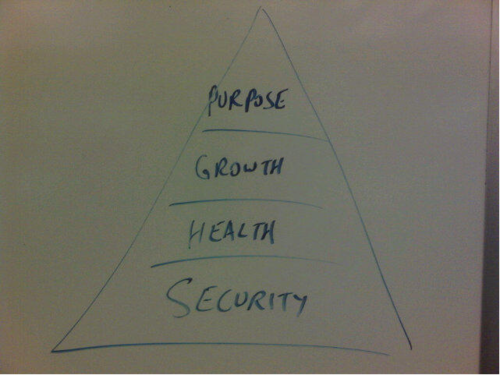 PURPOSE
GROWTH
HEALTH
SECURITY